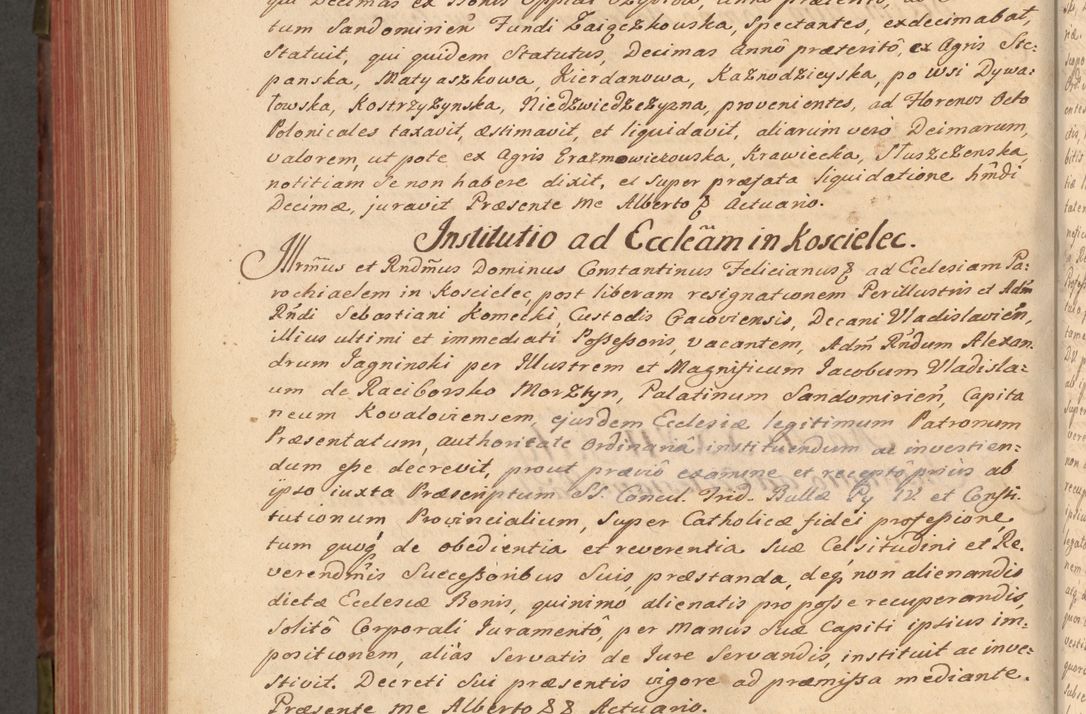 qui Decimas ex Bonis Oppidi
tum Sandomirien̄ Fundi Zaigczkouska, Spectantes, exdecimabat,
Statuit, qui quidem Statutus, Decimas Annô præteritô, ex Agris Ste:
panska, Matyaszkowa, Kierdanowa, Kaznodzieyska, po wsi Dywa:
łowska, Kostrzyzynska, Niedzwiedzezyzna, provenientes, ad Florenos Octo
Polonicales taxavit, æstimavit, et liquidavit, aliarum verò Deimarum,
valorem, ut pote ex Agris Erazmowiczouska, Krawiecka, Słuszczenska,
notitiam se non habere dixit, et super præfata liquidatione hm̄di
Decimæ, juravit Præsente me Alberto ꝑ Actuario.
Institutio ad Eccleām in Koscielec.
Illrm̄us et Rndm̄us Dominus Constantinus Felicianus ꝑ ad Ecclesiam Pa:
rochiaelem in Koscielec, post liberam resignationem Perillustris et Adm̄
Rn̄di Sebastiani Komecki, Custodis Cracoviensis, Decani Vladislavien̄,
illius ultimi et immediati Possessoris, vacantem, Adm̄ Rn̄dum Alexan:
drum Jagninski per Illustrem et Magnificum Jacobum Vladisla:
um de Raciborsko Morsztyn, Palatinum Sandomirien̄, Capita
neum Kovaloviensem, ejusdem Ecclesiæ legitimum Patronum
Præsentatum, authoritate Ordinariâ instituendum ac investien:
dum esse decrevit, prout præviô examine et recepto prius ab
ipso iuxta Præscriptum SS. Concil. Trid. Bullæ Py IV. et Consti:
tutionum Provincialium, super Catholicæ fidei professione
tum quoq́ de obedientia et reverentia suæ Celsitudini et Re:
verendm̄is Successoribus suis præstanda, deq́ non alienandis
dictæ Ecclesiæ Bonis, quinimô alienatis pro posse recuperandis,
solitô Corporali Juramentô, per manus suæ Capiti ipsius im:
positionem, aliàs servatis de Jure servandis, instituit ac inve:
stivit. Decreti sui præsentis vigore ad præmissa mediante.
Præsente me Alberto ꝑꝑ Actuario.